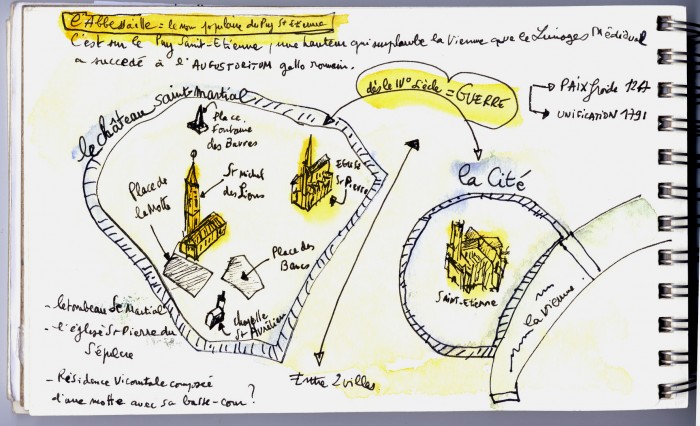 L'Abbessaille = le nom populaire du Puy St Etienne
C'est sur le Puy Saint-Etienne, une hauteur qui surplombe la Vienne que le Limoges Médiéval
a succédé à l'AUGUSTORITUM gallo romain.
dès le IVe siècle = GUERRE
PAIX froide 12
UNIFICATION 1791
le château Saint-Martial
Place
Fontaine
des Barres
St Michel
des Lions
EGLISE
St Pierre
Place de
la Motte
Place des
Bancs
chapelle
St Aurélien
la Cité
SAINT-ETIENNE
la Vienne
- le tombeau St Martial
- l'église St Pierre du
Sépulcre
- Résidence Vicomtale composée
d'une motte avec sa basse-cour ?
Entre 2 villes